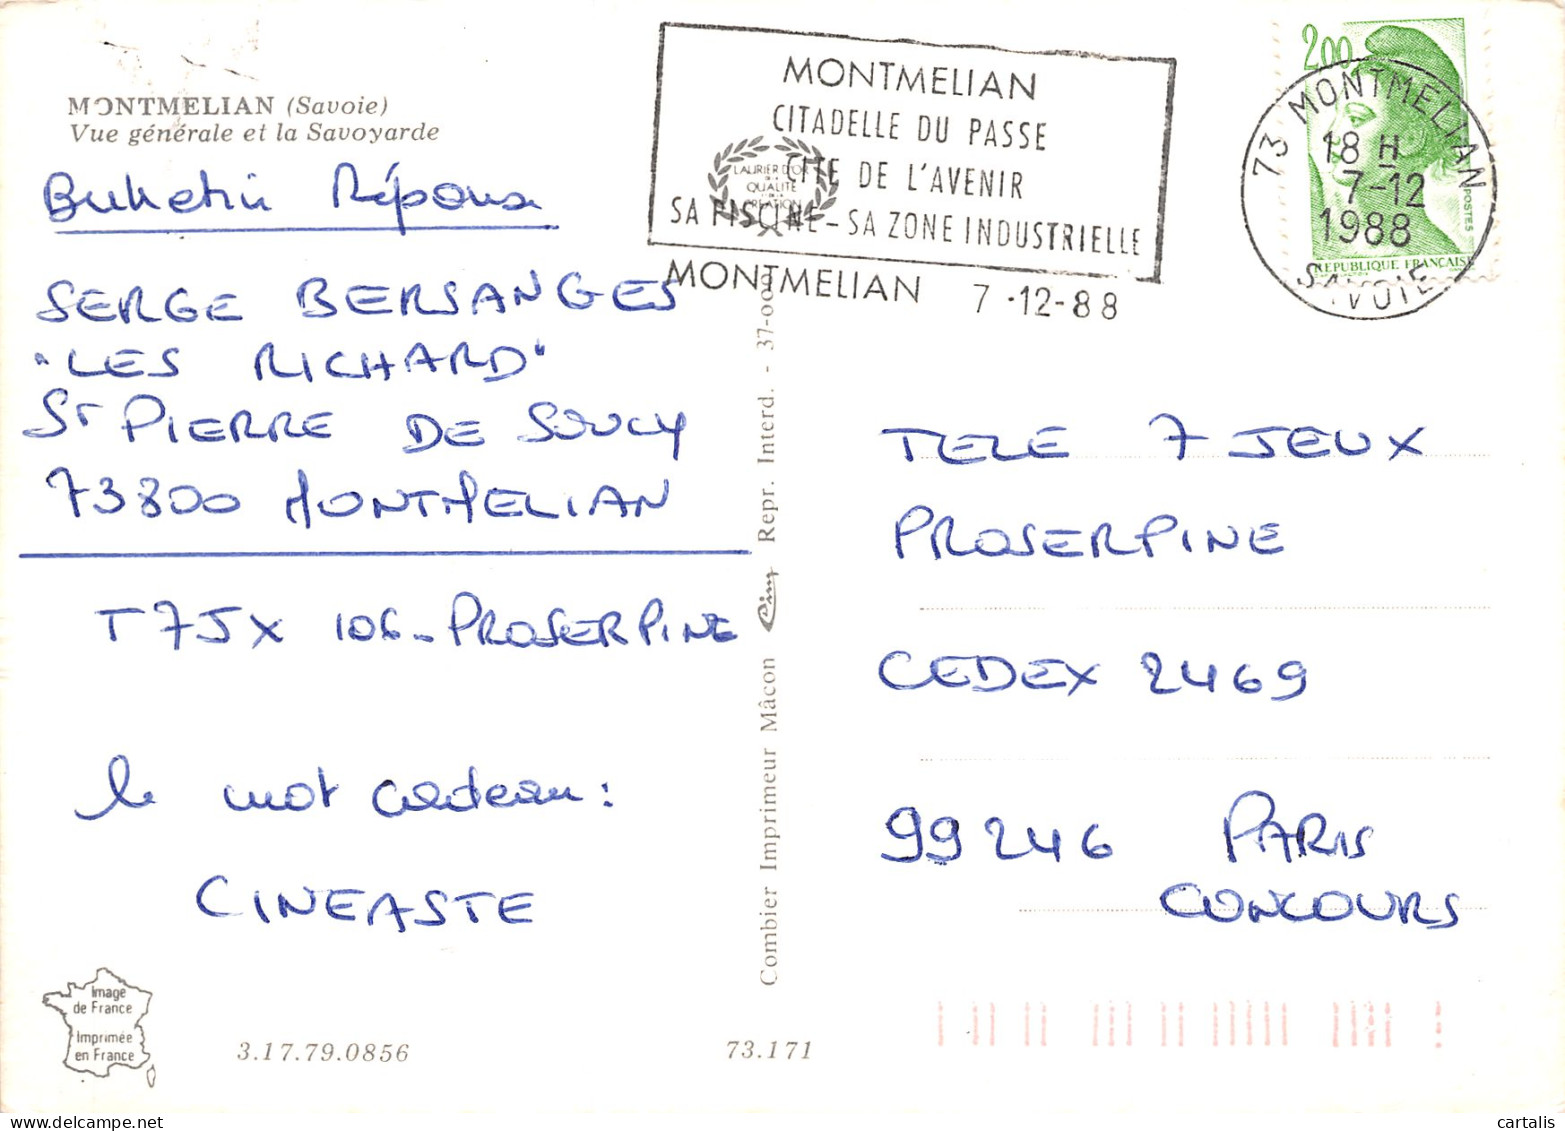 MONTMELIAN (Savoie)
Vue générale et la Savoyarde
Bulletin Réponse
SERGE BERSANGES
"LES RICHARD"
St PIERRE DE SOUCY
73800 MONTMELIAN
T7JX 106-PROSERPINE
le mot cadeau:
CINEASTE
Image
de France
Imprimée
en France
3.17.79.0856
73.171
Combier Imprimeur Mâcon Cim Repr. Interd. - 37-00
LAURIER D'OR
DE LA
QUALITE
CREATION
MONTMELIAN
CITADELLE DU PASSE
CITE DE L'AVENIR
SA PISCINE - SA ZONE INDUSTRIELLE
MONTMELIAN 7-12-88
2,00
73 MONTMELIAN
18 H
7-12
1988
SAVOIE
POSTES
REPUBLIQUE FRANCAISE
TELE 7 JEUX
PROSERPINE
CEDEX 2469
99246 PARIS
CONCOURS
cartalis